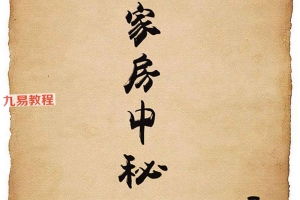 家房中秘
九易教程